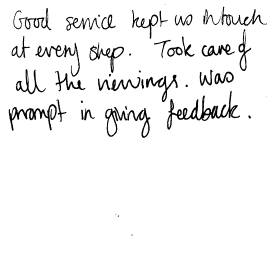 Good service kept us in touch
at every step. Took care of
all the viewings. was
prompt in giving feedback.